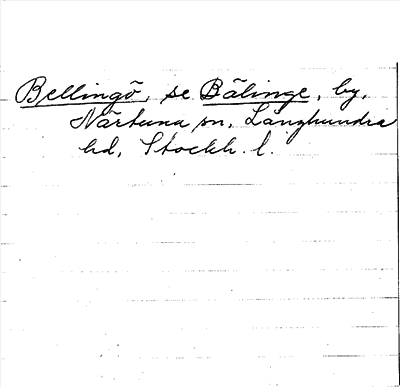 Bellingö, se Bälinge, by,
Närtuna sn, Långhundra
hd, Stockh. l.